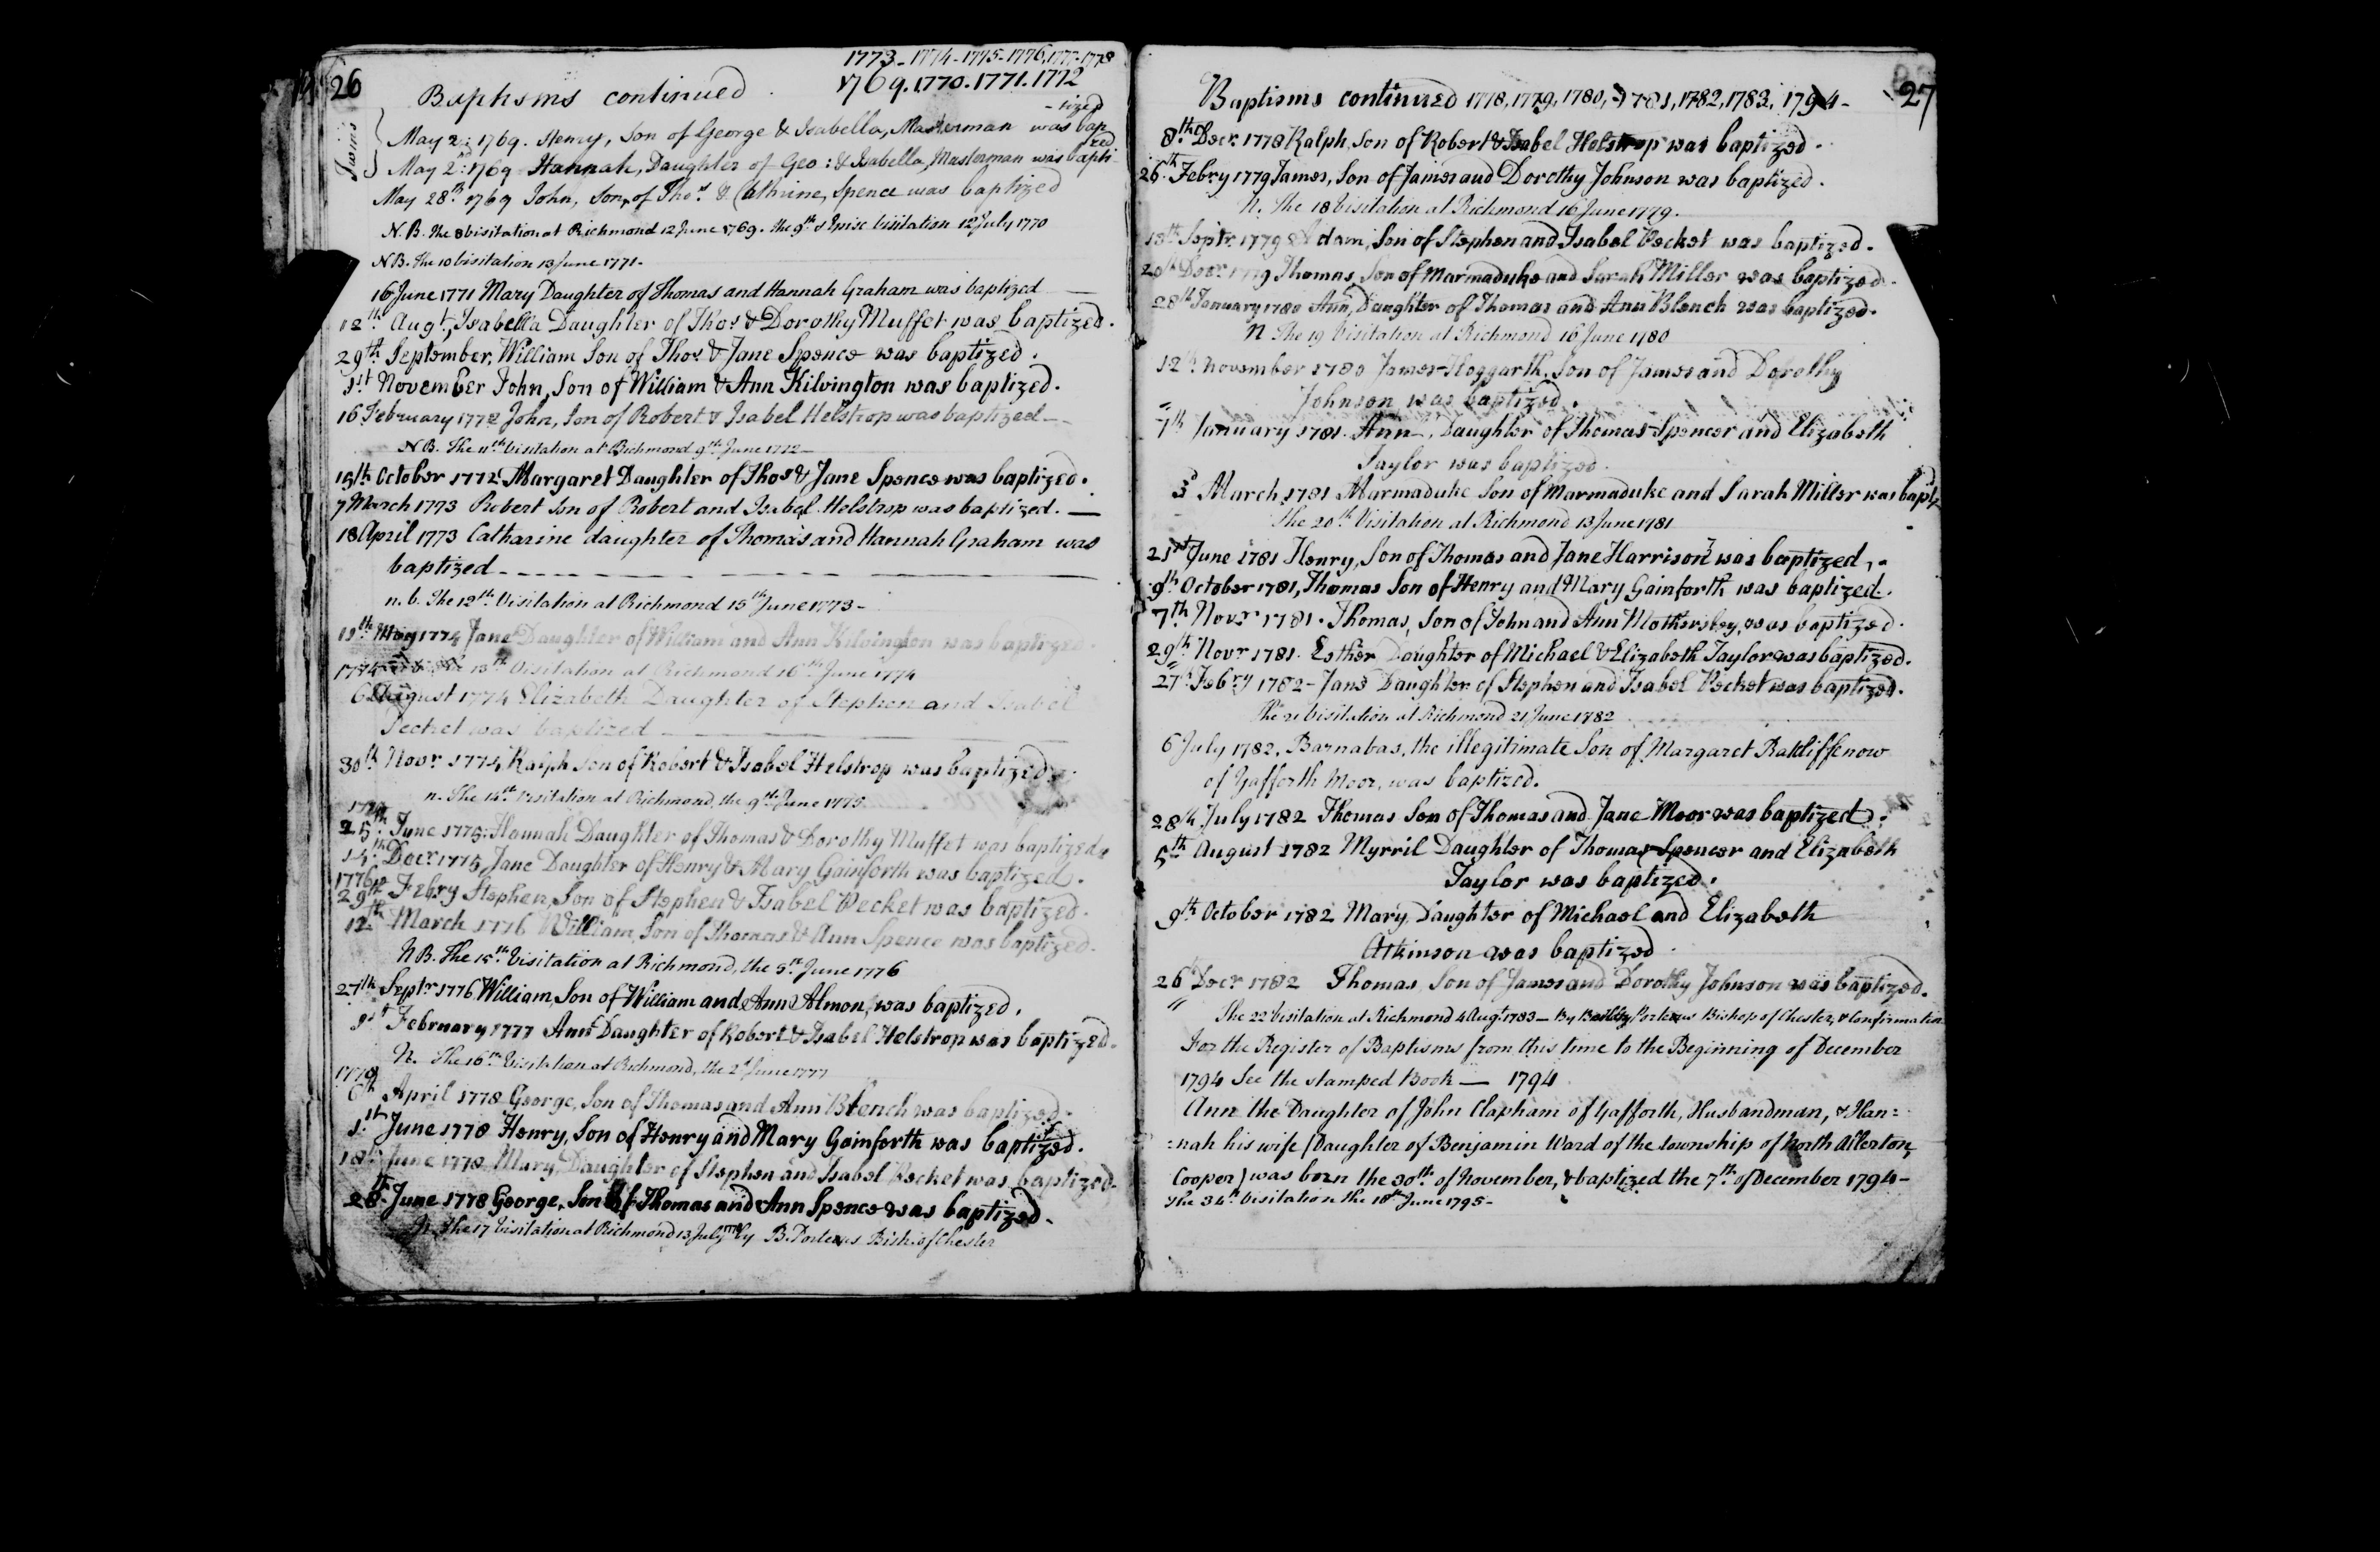 1773-1774-1775-1776,1777-1778
26 Baptisms continued. 1769.1770.1771.1772
Twins
-tized
May 2: 1769. Henry, Son of George & Isabella, Masterman was bap
zed
May 2d: 1769 Hannah, Daughter of Geo: & Isabella, Masterman was bapti
May 28th 1769 John, Son, of Thos. & Cathrine, Spence was baptized
N.B. The 8 visitation at Richmond 12 June 1769. the 9th visitation 12 July 1770
N B. The 10 visitation 13 June 1771.
16 June 1771 Mary Daughter of Thomas and Hannah Graham was baptized
12th Augt, Isabella Daughter of Thos & Dorothy Muffet was baptized.
29th September, William Son of Thos & Jane Spence was baptized.
1st November John, Son of William & Ann Kilvington was baptized.
16 February 1772 John, Son of Robert & Isabel Helstrop was baptized-
N B. The 11th visitation at Richmond 9th June 1772-
15th October 1772 Margaret Daughter of Thos & Jane Spence was baptized.
7 March 1773 Robert Son of Robert and Isabel Helstrop was baptized. —
18 April 1773 Catharine daughter of Thomas and Hannah Graham was
baptized
n.b. The 12th Visitation at Richmond 15th June 1773-
May 1774 Jane Daughter of William and Ann Kilvington was baptized.
1774 13th Visitation at Richmond 16th June 1774
6 August 1774 Elizabeth Daughter of Stephen and Isabel
Pecket was baptized
30th Novr 1774 Ralph Son of Robert & Isabel Helstrop was baptized.
n. The 14th Visitation at Richmond, the 9th June 1775
25th June 1775. Hannah Daughter of Thomas & Dorothy Muffet was baptized.
14th Decr 1775 Jane Daughter of Henry & Mary Gainforth was baptized.
1776
29th Febry Stephen, Son of Stephen & Isabel Pecket was baptized.
12th March 1776 William, Son of Thomas & Ann Spence was baptized.
N B. The 15th Visitation at Richmond, the 5th June 1776
27th Septr 1776 William, Son of William and Ann Almon, was baptized.
February 1777 Ann Daughter of Robert & Isabel Helstrop was baptized.
N. The 16th Visitation at Richmond, the 2d June 1777
1778
6th April 1778 George, Son of Thomas and Ann Blench was baptized.
1st June 1778 Henry, Son of Henry and Mary Gainforth was baptized.
18th June 1778 Mary, Daughter of Stephen and Isabel Pecket was baptized.
28th June 1778 George, Son of Thomas and Ann Spence was baptized.
N. The 17 Visitation at Richmond 13 July by B. Porteus Bish. of Chester
Baptisms continued 1778, 1779, 1780, 1781, 1782, 1783, 1794- 27
8th Decr 1778 Ralph, Son of Robert & Isabel Helstrop was baptized.
26th Febry 1779 James, Son of James and Dorothy Johnson was baptized.
N. The 18 Visitation at Richmond 16 June 1779.
Septr 1779 Adam, Son of Stephen and Isabel Pecket was baptized.
Decr 1779 Thomas, Son of Marmaduke and Sarah Miller was baptized.
28th January 1780 Ann, Daughter of Thomas and Ann Blench was baptized.
N The 19 Visitation at Richmond 16 June 1780
12th November 1780 James-Hoggarth, Son of James and Dorothy
Johnson was baptized.
7th January 1781. Ann, Daughter of Thomas-Spencer and Elizabeth
Taylor was baptized.
3d March 1781 Marmaduke Son of Marmaduke and Sarah Miller was baptzd
The 20th Visitation at Richmond 13 June 1781
21st June 1781 Henry, Son of Thomas and Jane Harrison was baptized.
9th October 1781, Thomas Son of Henry and Mary Gainforth was baptized.
7th Novr 1781. Thomas, Son of John and Ann Mothersley, was baptized.
29th Novr 1781. Esther Daughter of Michael & Elizabeth Taylor was baptized.
27th Febry 1782-Jane Daughter of Stephen and Isabel Pecket was baptized.
The 21 visitation at Richmond 21 June 1782
6 July 1782, Barnabas, the illegitimate Son of Margaret Ratcliffe now
of Yafforth Moor, was baptized.
28th July 1782 Thomas Son of Thomas and Jane Moor was baptized.
5th August 1782 Myrril Daughter of Thomas-Spencer and Elizabeth
Taylor was baptized.
9th October 1782 Mary, Daughter of Michael and Elizabeth
Atkinson was baptized.
26 Decr 1782 Thomas, Son of James and Dorothy Johnson was baptized.
The 22 visitation at Richmond 4 Augt 1783- By Beilby Porteus Bishop of Chester, & Confirmation
For the Register of Baptisms from this time to the Beginning of December
1794 See the stamped Book — 1794
Ann the Daughter of John Clapham of Yafforth, Husbandman, & Han=
=nah his wife (Daughter of Benjamin Ward of the township of North Allerton,
Cooper) was born the 30th of November, & baptized the 7th of December 1794-
The 34th Visitation the 18th June 1795-